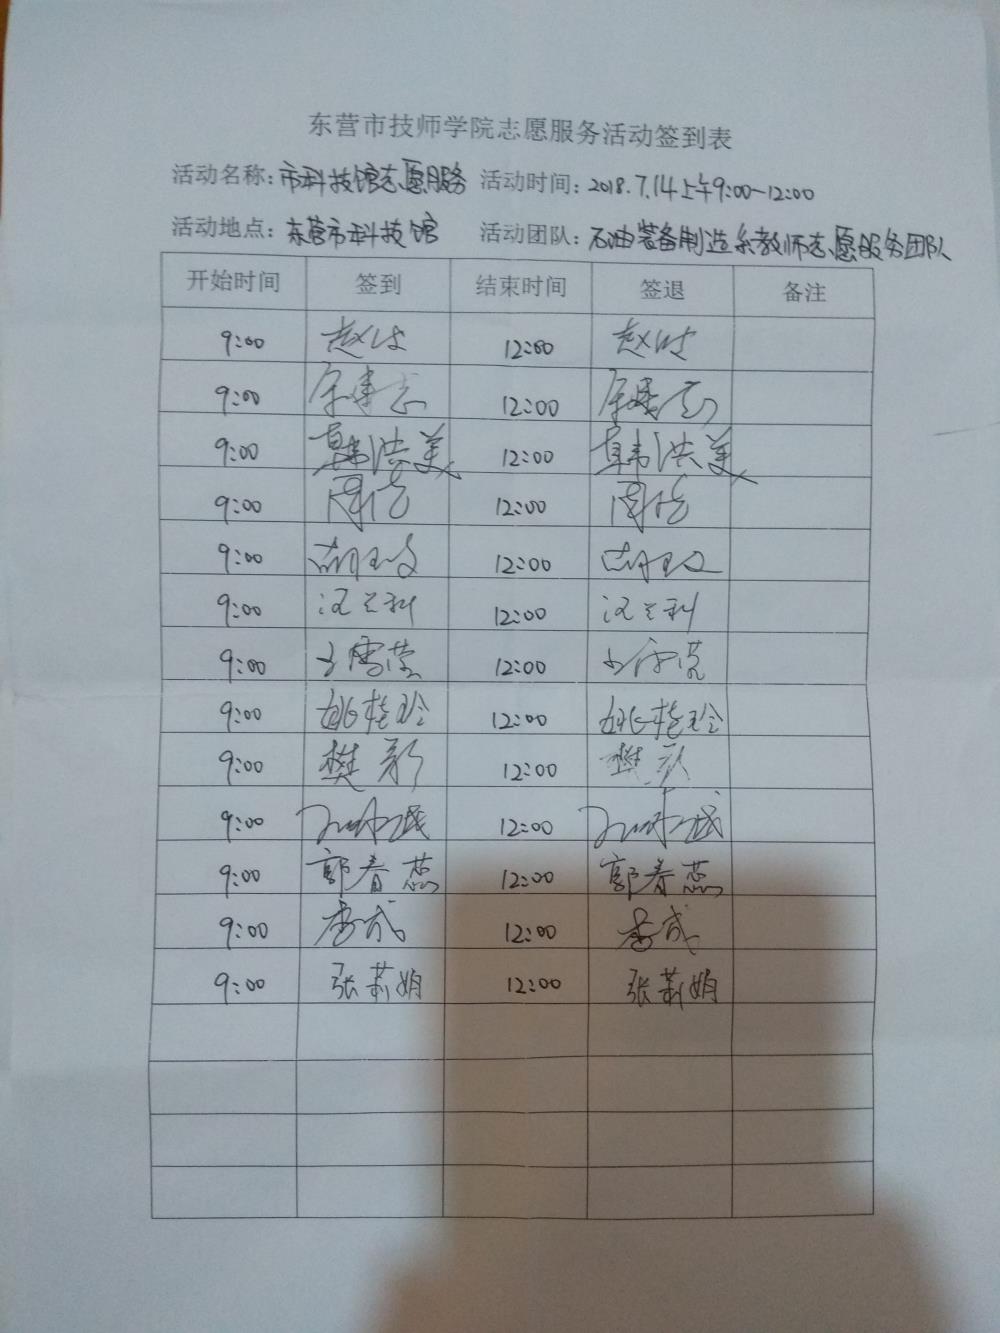 东营市技师学院志愿服务活动签到表
活动名称:市科技馆志愿服务 活动时间:2018.7.14上午9:00-12:00
活动地点:东营市科技馆 活动团队:石油装备制造系教师志愿服务团队
开始时间 签到 结束时间 签退 备注
9:00 12:00
9:00 12:00
9:00 韩洪美 12:00 韩洪美
9:00 周 12:00 周
9:00 胡 12:00 胡
9:00 12:00
9:00 12:00
9:00 姚桂玲 12:00 姚桂玲
9:00 樊彩 12:00 樊
9:00 12:00
9:00 郭春蕊 12:00 郭春蕊
9:00 李成 12:00 李成
9:00 张莉娟 12:00 张莉娟